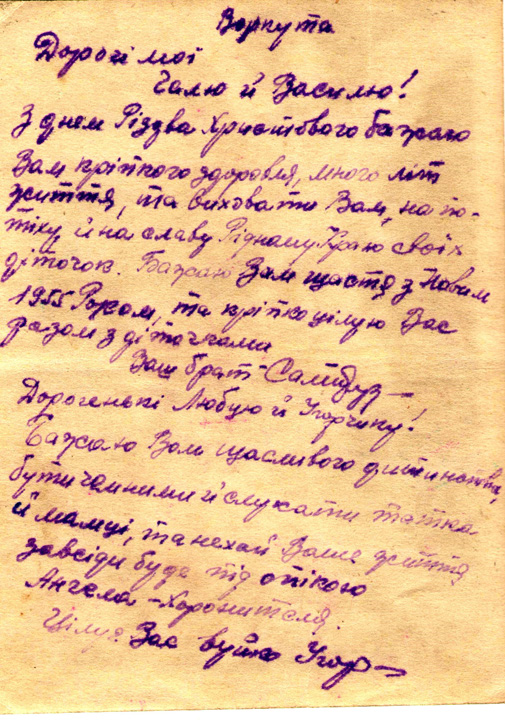 Воркута
Дорогі мої
Галю й Василю!
З днем Різдва Христового бажаю
Вам кріпкого здоровля, много літ
життя, та виховати Вам, на по-
тіху й на славу Рідному Краю своїх
діточок. Бажаю Вам щастя з Новим
1955 Роком, та кріпко цілую Вас
разом з діточками
Ваш брат
Дорогенькі Любцю й Ігорчику!
Бажаю Вам щасливого дитинства,
бути чемними й слухати татка
й мамці, та нехай Ваше життя
завсіди буде під опікою
Ангела-Хоронителя.
Цілує Вас вуйко Ігор